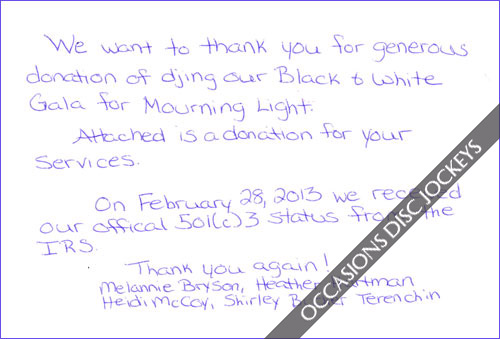 We want to thank you for generous
donation of djing our Black & White
Gala for Mourning Light.
Attached is a donation for your
Services.
On February 28, 2013 we
our offical 501(c)3 status from the
IRS.
Thank you again!
Melannie Bryson, Heather
Heidi McCoy, Shirley Terenchin
OCCASIONS DISC JOCKEYS